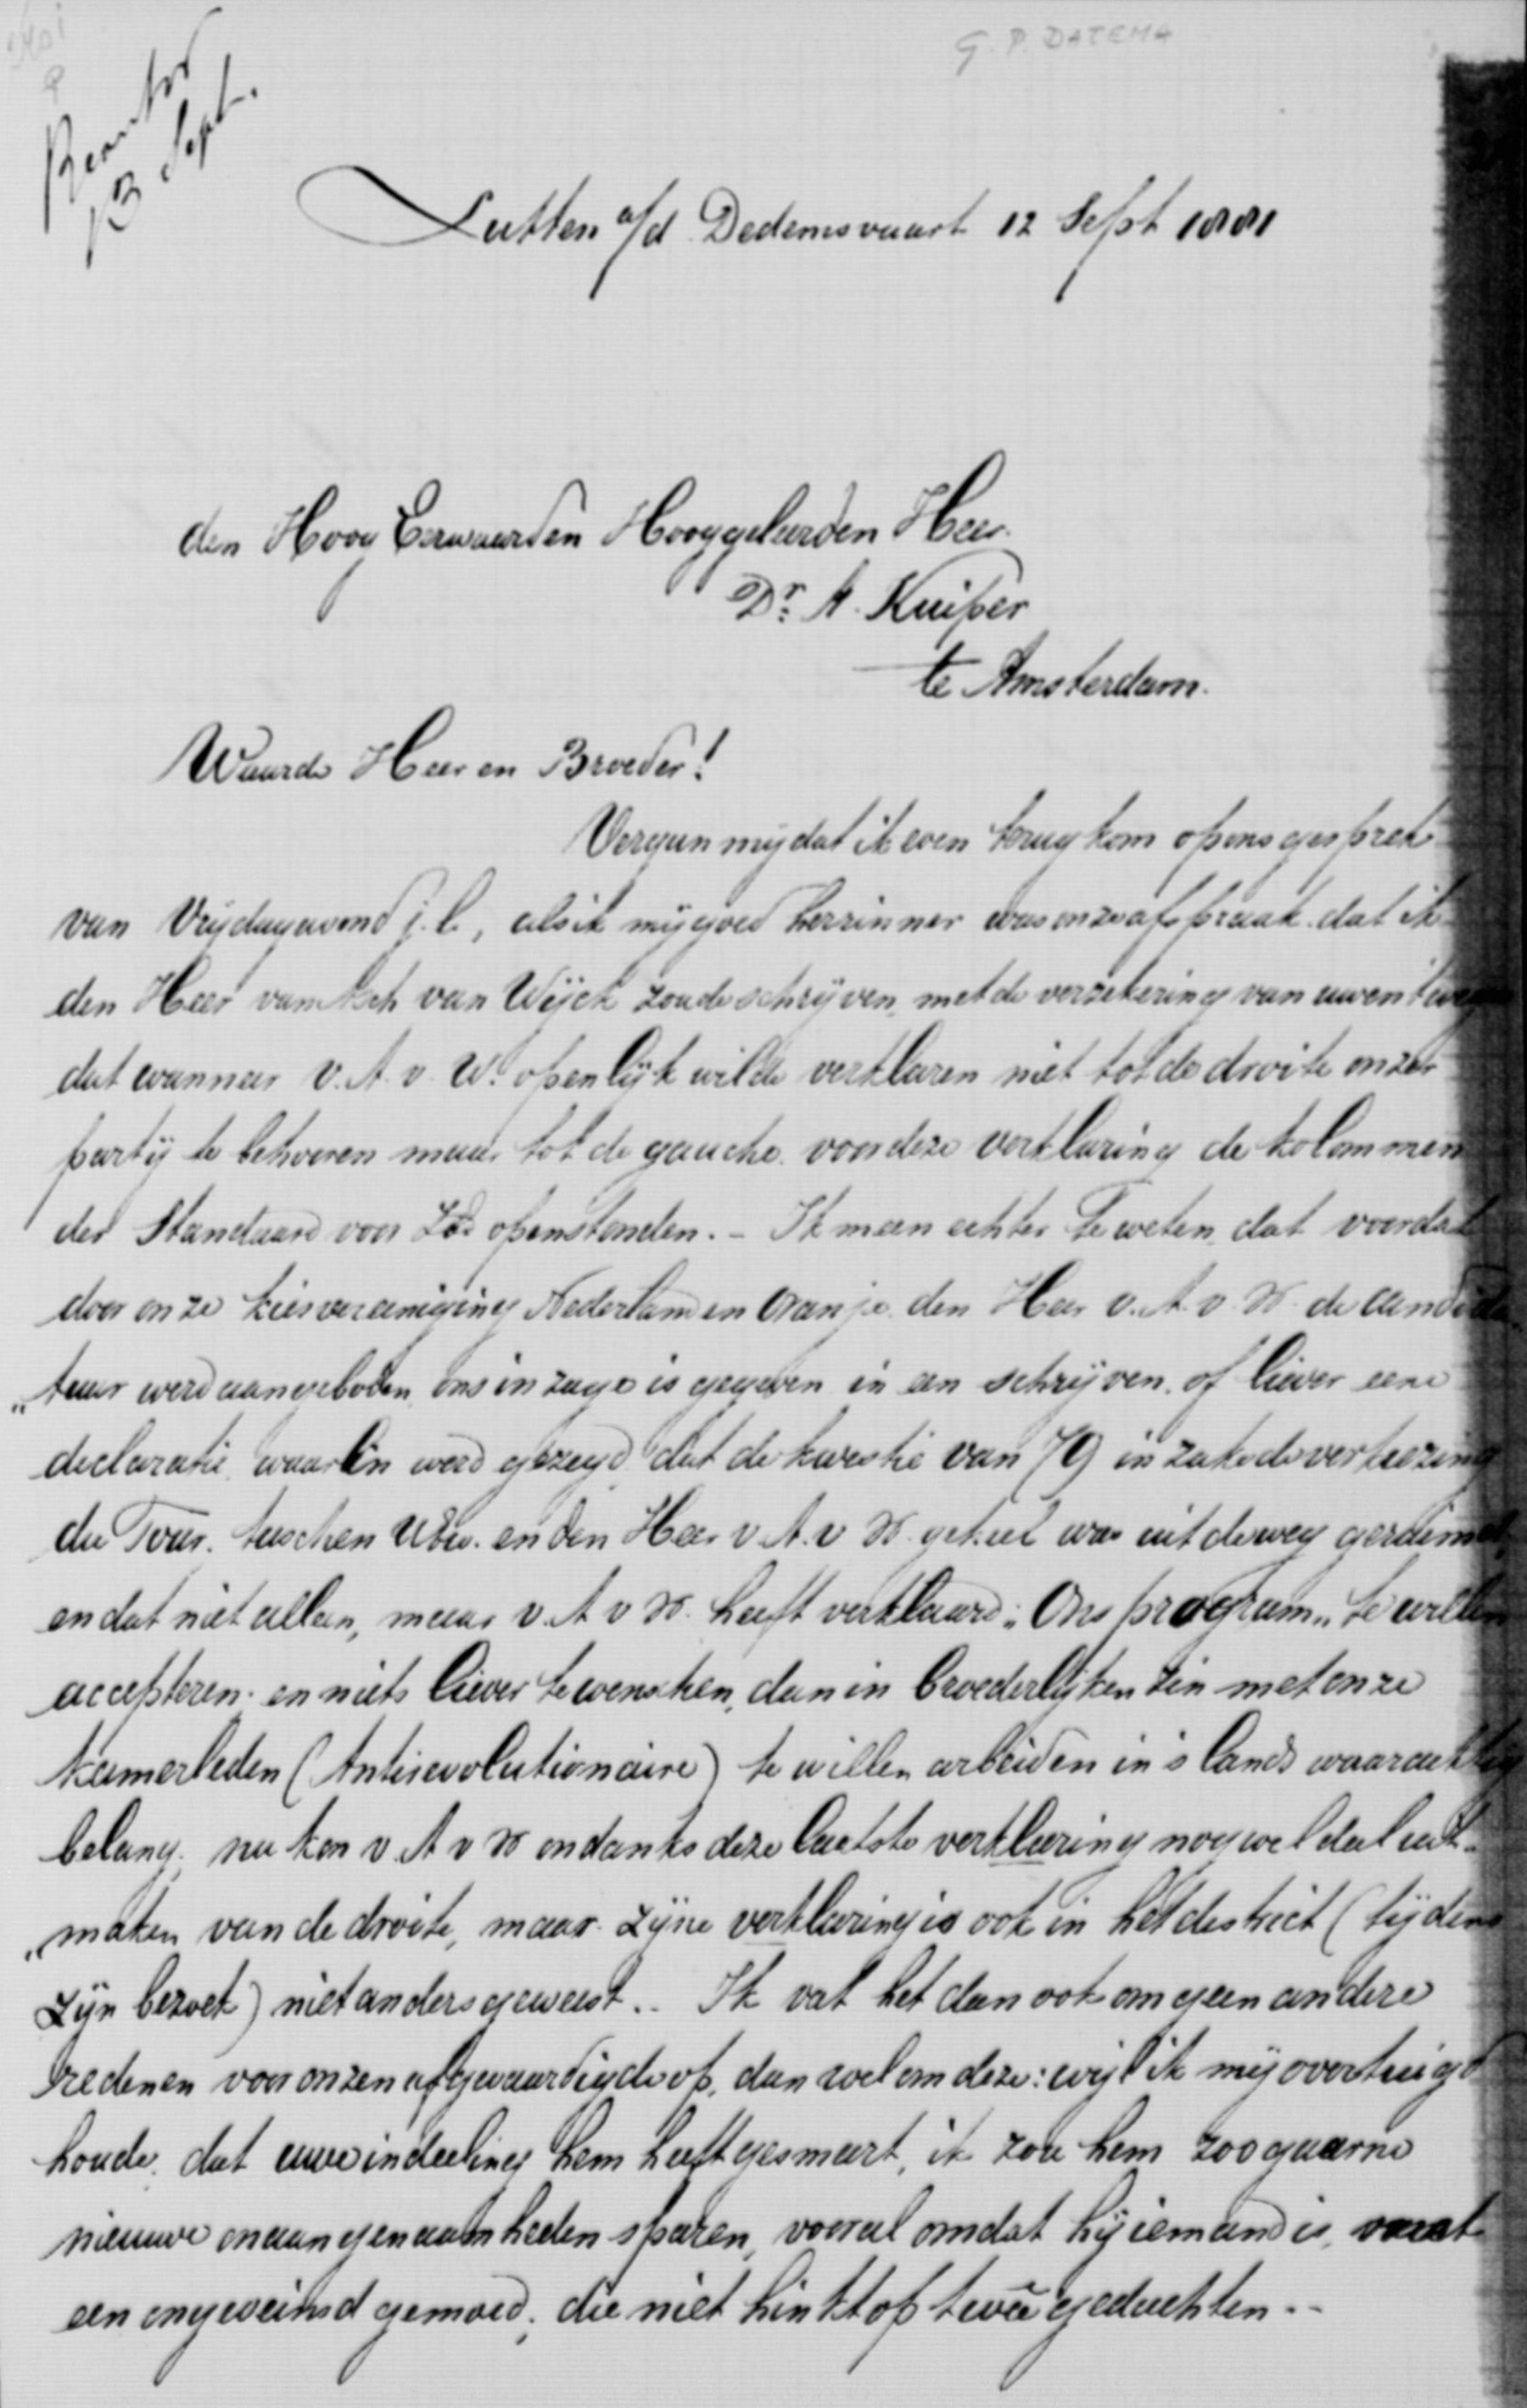 G. P. DATEMA
Beantw
13 Sept.
Lutten a/d Dedemsvaart 12 Sept 1881
den Hoog Eerwaarden Hooggeleerden Heer
Dr. A. Kuiper
te Amsterdam.
Waarde Heer en Broeder!
Vergun mij dat ik even terug kom op ons gesprek
van Vrijdagavond j.l., als ik mij goed herrinner was onze afspraak dat ik
den Heer van Asch van Wijck zoude schrijven, met de verzekering van uwentwege
dat wanneer v. A. v. W. openlijk wilde verklaren niet tot de droite onzer
partij te behooren maar tot de gauche voor deze verklaring de kolommen
der Standaard voor openstonden. - Ik meen echter te weten, dat voordat
door onze kiesvereeniging Nederland en Oranje den Heer v. A. v. W. de candida
„tuur werd aangeboden, ons inzage is gegeven in een schrijven, of liever eene
declaratie, waarin werd gezegd dat de kwestie van 79 in zake de verkiezing
du Tour, tusschen UEw. en den Heer v A. v W. geheel was uit de weg geruimd,
en dat niet alleen, maar v. A v W. heeft verklaard „Ons program„ te willen
accepteren en niets liever te wenschen, dan in broederlijken zin met onze
kamerleden (Antirevolutionaire) te willen arbeiden in 's lands waarachtig
belang, nu kon v. A v W ondanks deze laatste verklaring nog wel deel uit„
„maken van de droite, maar zijne verklaring is ook in het district (tijdens
zijn bezoek) niet anders geweest.. Ik vat het dan ook om geen andere
redenen voor onzen afgevaardigde op, dan wel om deze: wijl ik mij overtuigd
houde, dat uwe indeeling hem heeft gesmart, ik zou hem zoo gaarne
nieuwe onaangenaamheden sparen, vooral omdat hij iemand is,
een ongeveinsd gemoed, die niet hinkt op twee gedachten. -